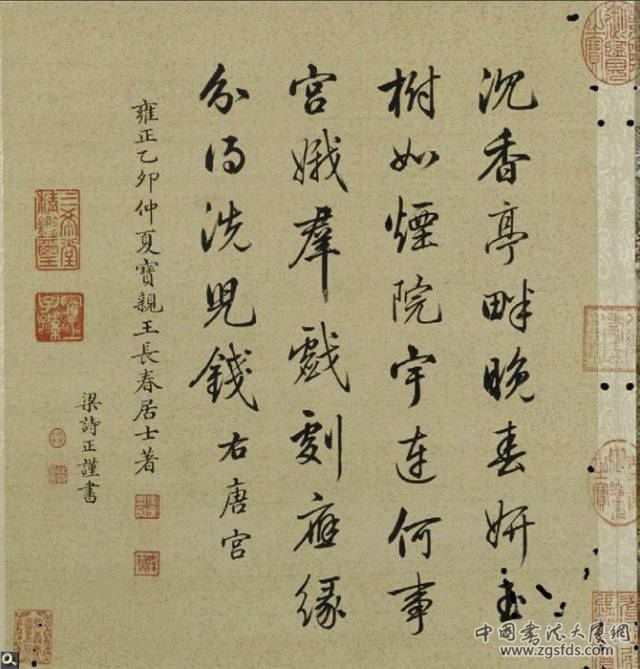 沉香亭畔晚春妍玉
樹如煙院宇連何事
宮娥羣戲劇應緣
分得洗兒錢右唐宮
雍正乙卯仲夏寶親王長春居士著
梁詩正謹書
三希堂精鑒璽
宜子孫
中國書法大廈網
www.zgsfds.com